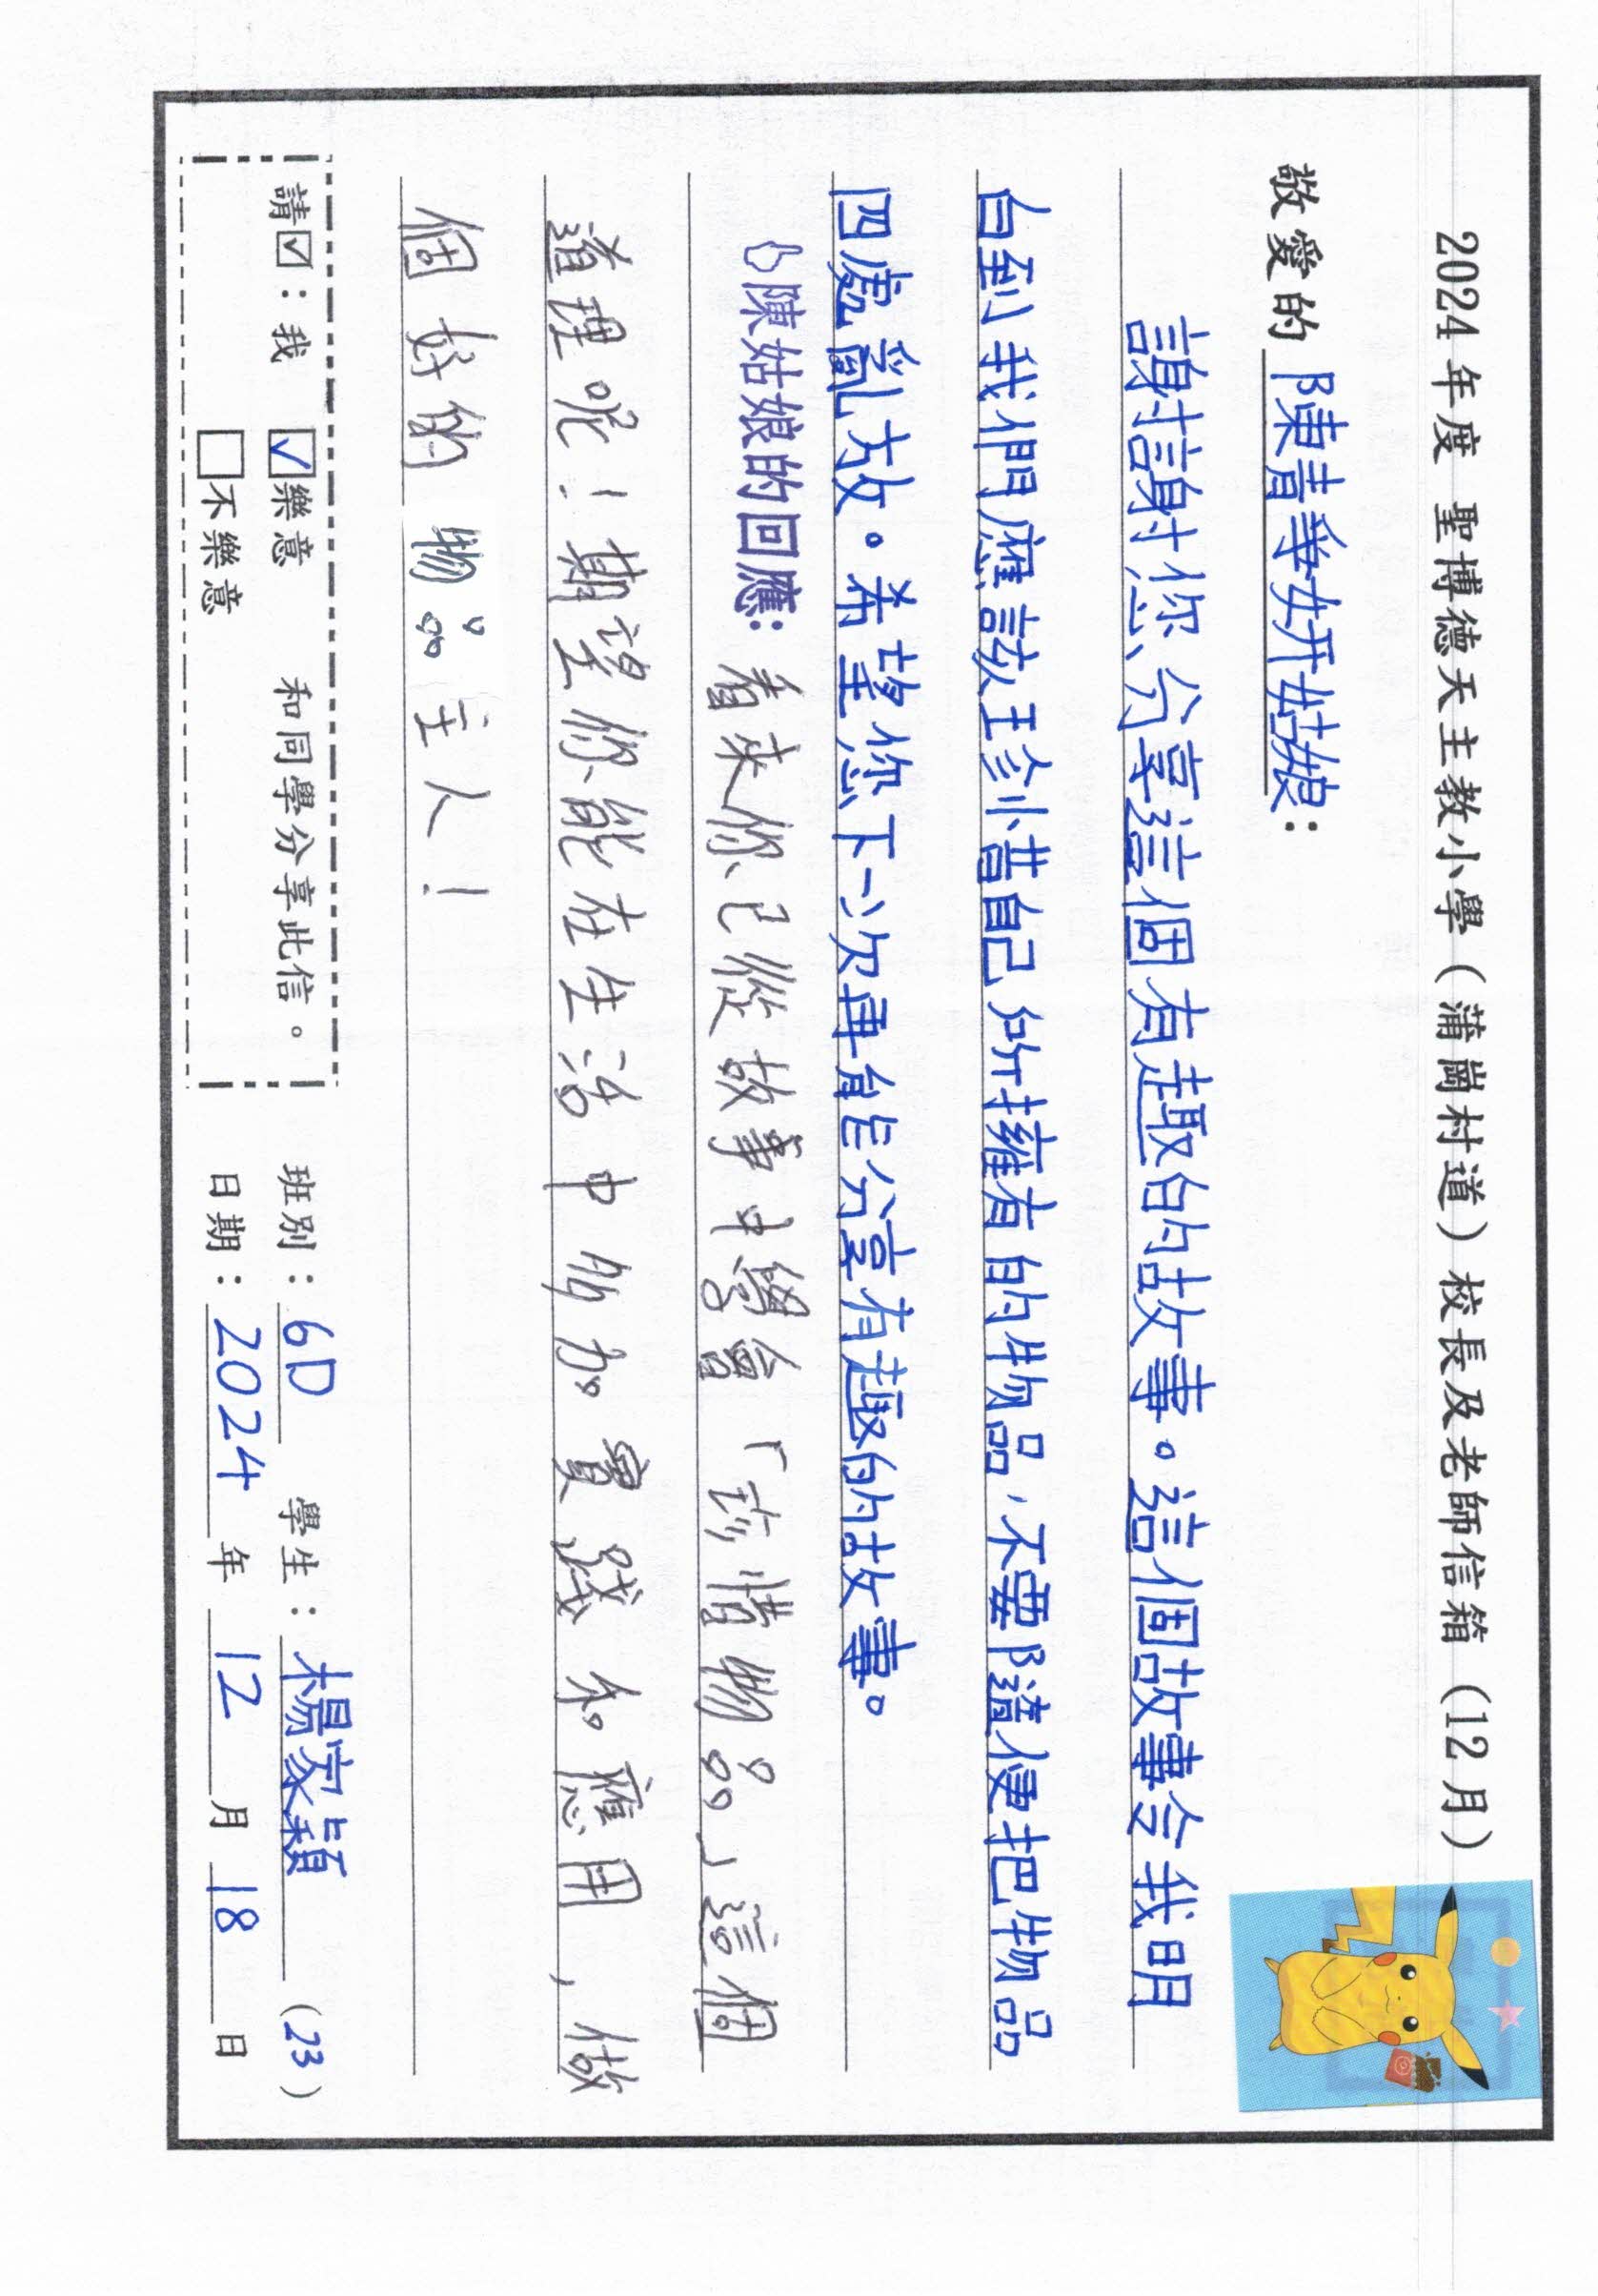 2024年度 聖博德天主教小學（蒲崗村道）校長及老師信箱（12月）
敬愛的 陳青華妍姑娘：
謝謝您分享這個有趣的故事。這個故事令我明
白到我們應該珍惜自己所擁有的物品，不要隨便把物品
四處亂放。希望您下一次再能分享有趣的故事。
陳姑娘的回應：看來你已從故事中學會「珍惜物品」這個
道理呢！期望你能在生活中多加實踐和應用，做
個好的物品主人！
請☑：我 ☑樂意 和同學分享此信。 班別：6D 學生：楊家穎（23）
□不樂意 日期：2024年12月18日